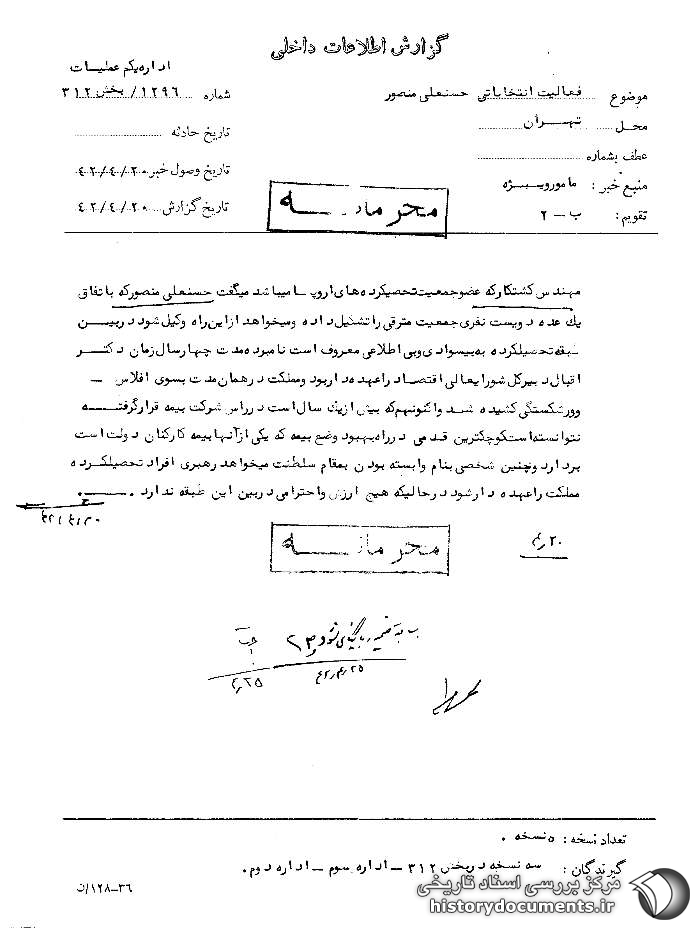 گزارش اطلاعات داخلی
اداره یکم عملیات
موضوع فعالیت انتخاباتی حسنعلی منصور
شماره ۱۲۹۶/ بخش ۳۱۲
محل تهران
تاریخ حادثه
عطف بشماره
تاریخ وصول خبر ۴۲/۴/۲۰
منبع خبر: مامور ویژه
تاریخ گزارش ۴۲/۴/۲۰
تقویم: ب-۲
محرمانه
مهندس کشتکار که عضو جمعیت تحصیکرده های اروپا میباشد میگفت حسنعلی منصور که باتفاق
یك عده دویست نفری جمعیت مترقی را تشکیل داده ومیخواهد از این راه وکیل شود دربین
طبقه تحصیلکرده به بیسوادی وبی اطلاعی معروف است نامبرده مدت چهارسال زمان دکتر
اقبال دبیرکل شورایعالی اقتصاد راعهده داربود ومملکت درهمان مدت بسوی افلاس -
وورشکستگی کشیده شد واکنونهم که بیش ازیك سال است درراس شرکت بیمه قرارگرفته
نتوانسته است کوچکترین قدمی درراه بهبود وضع بیمه که یکی ازآنها بیمه کارکنان دولت است
بردارد وچنین شخصی بنام وابسته بودن بمقام سلطنت میخواهد رهبری افراد تحصیلکرده
مملکت راعهده دارشود درحالیکه هیچ ارزش واحترامی دربین این طبقه ندارد.
محرمانه
۲۰ر۴
۴۲ر۴ر۲۵
۲۵ر۴
تعداد نسخه: ۵ نسخه.
گیرندگان: سه نسخه دربخش ۳۱۲ - اداره سوم - اداره دوم.
۳۶-۱۲۸/ن
مرکز بررسی اسناد تاریخی
historydocuments.ir